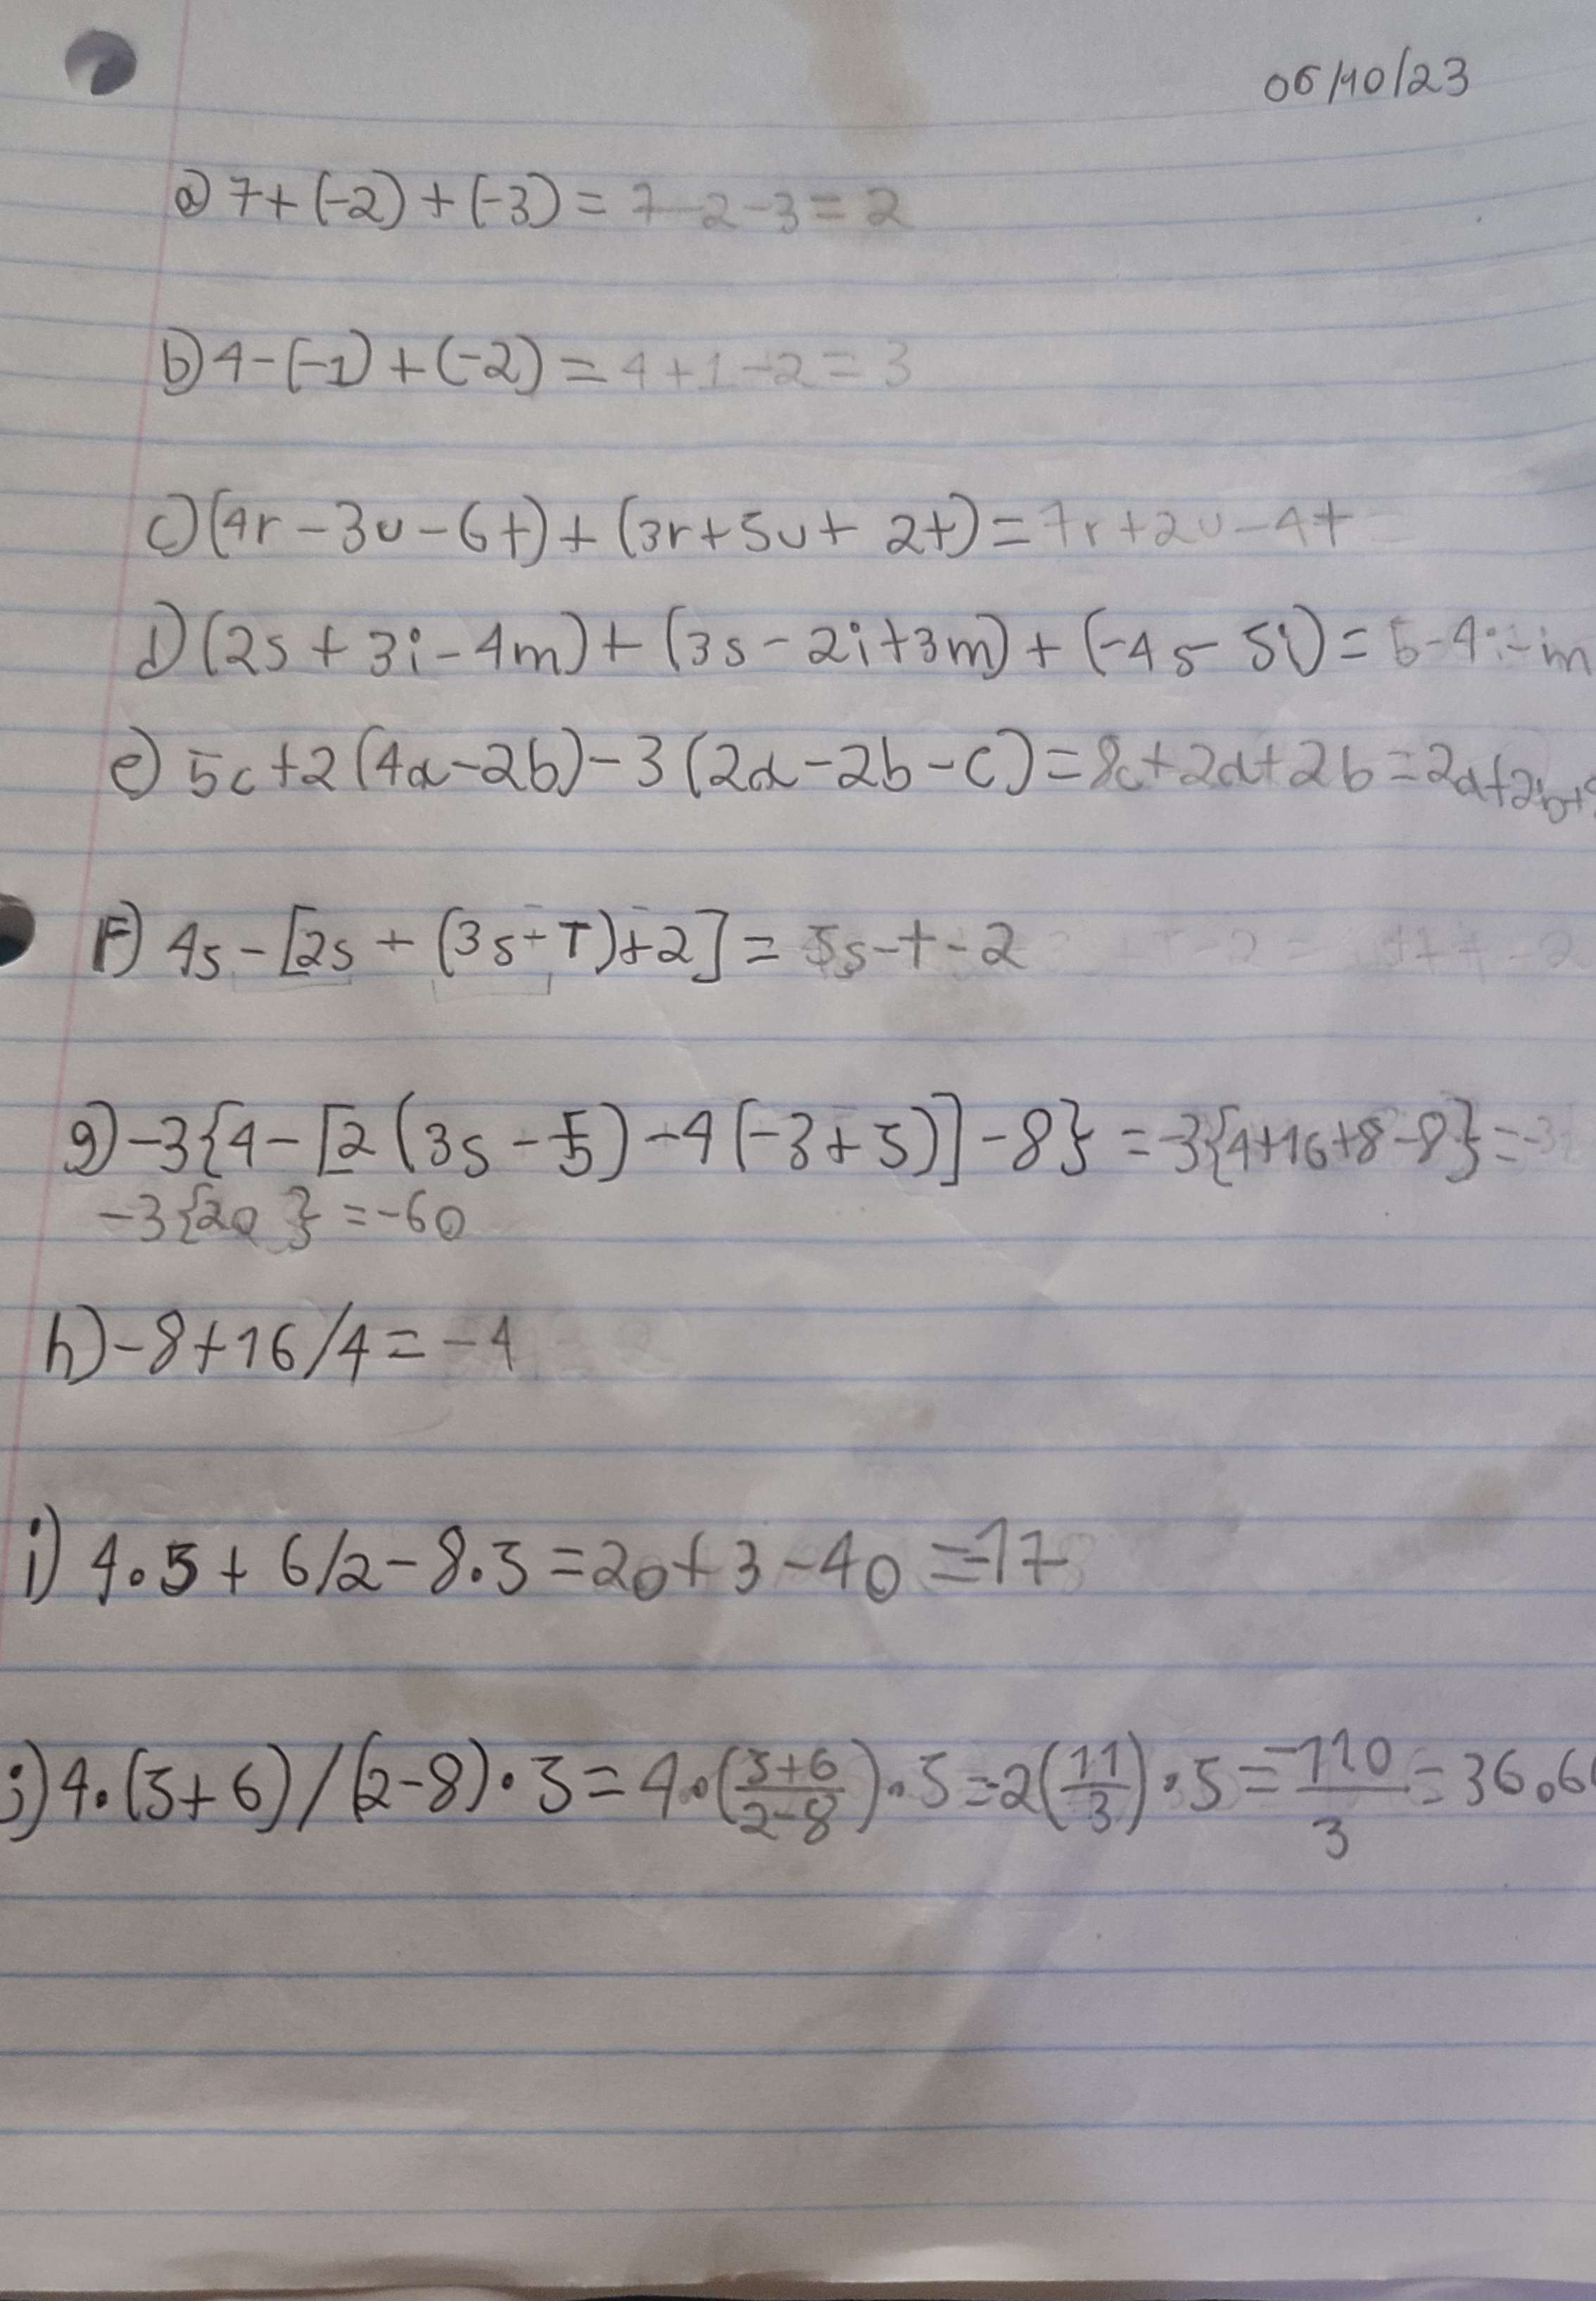 06/10/23
a) 7+(-2)+(-3)=7-2-3=2
b) 4-(-1)+(-2)=4+1-2=3
c) (4r-3u-6t)+(3r+5u+2t)=7r+2u-4t
d) (2s+3i-4m)+(3s-2i+3m)+(-4s-5i)=s-4i-m
e) 5c+2(4a-2b)-3(2a-2b-c)=8c+2a+2b=2a+2b+
F) 4s-[2s+(3s-T)+2]=5s-t-2
g) -3{4-[2(3s-5)-4(-3+5)]-8}=-3{4+16+8-8}=
-3{20}=-60
h) -8+16/4=-4
i) 4.5+6/2-8.5=20+3-40=-17
j) 4.(5+6)/(2-8).5=4.(5+6/2-8).5=-2(11/3).5=-110/3=36.6